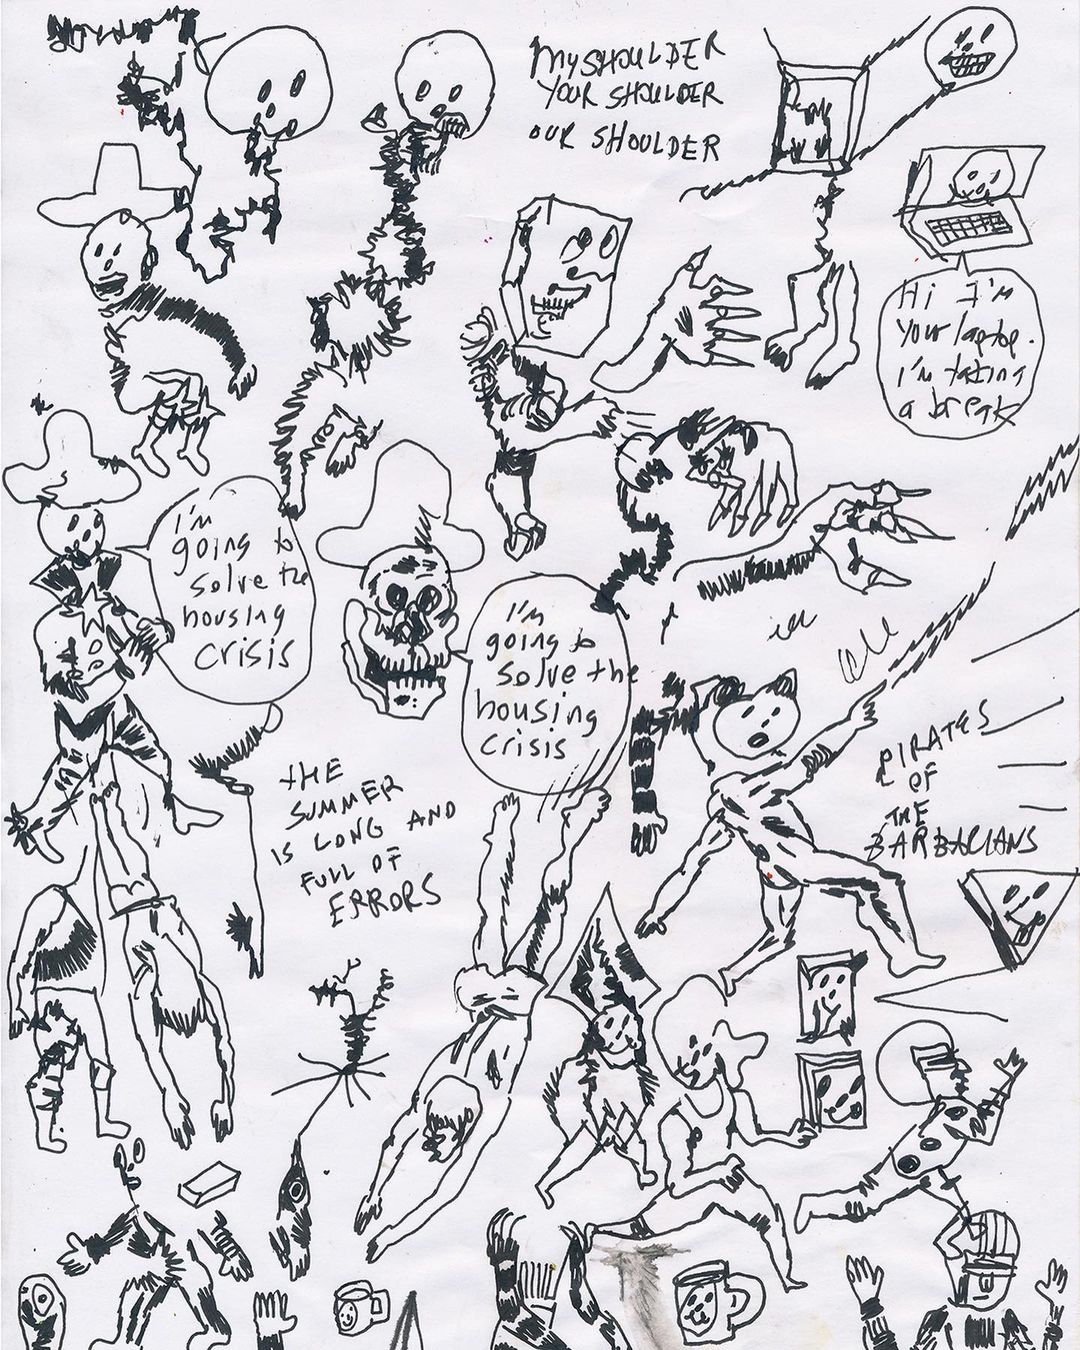 MY SHOULDER
YOUR SHOULDER
OUR SHOULDER
Hi I'm
your laptop.
I'm taking
a break
I'm
going to
solve the
housing
crisis
I'm
going to
solve the
housing
crisis
THE
SUMMER
IS LONG AND
FULL OF
ERRORS
PIRATES
OF
THE
BARBARIANS